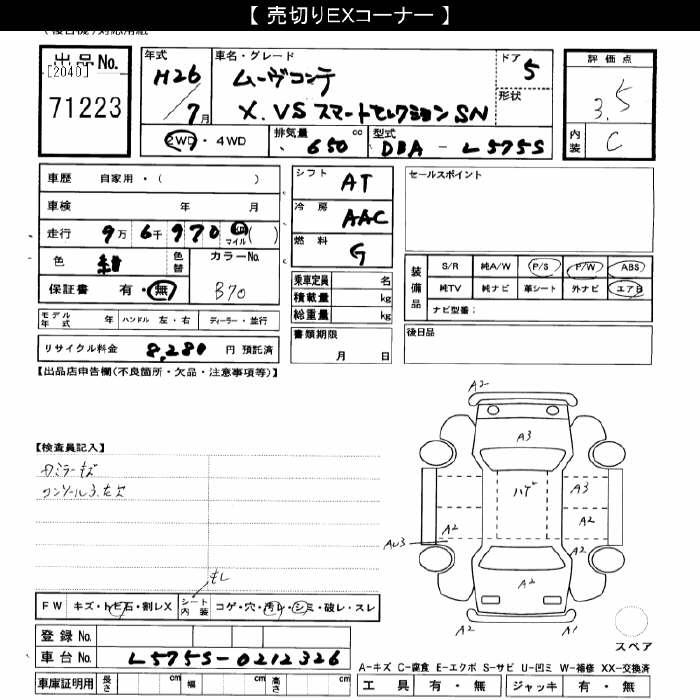 【 売切りEXコーナー 】
出品No.
[2040]
71223
年式
H26
7月
車名・グレード
ムーヴコンテ
X.VSスマートセレクションSN
ドア
5
形状
評価点
3.5
内装
C
2WD・4WD
排気量
650 cc
型式
DBA-L575S
車歴 自家用・( )
車検 年 月
走行 9万6千970 マイル( )
色 紺
色替
カラーNo.
B70
保証書 有・無
モデル年式 年
ハンドル 左・右
ディーラー・並行
リサイクル料金 8,280 円 預託済
シフト
AT
冷房
AAC
燃料
G
乗車定員 名
積載量 kg
総重量 kg
書類期限
月 日
セールスポイント
装備品
S/R 純A/W P/S P/W ABS
純TV 純ナビ 革シート 外ナビ エアB
ナビ型番:
後日品
【出品店申告欄(不良箇所・欠品・注意事項等)】
【検査員記入】
モレ
FW キズ・トビ石・割レX
シート内装 コゲ・穴・汚レ・シミ・破レ・スレ
登録No.
車台No. L575S-0212326
車庫証明用 長さ cm 幅 cm 高さ cm
A2
A3
ハゲ
A3
A2
A2
AU3
A2
A2
A2
A1
スペア
A-キズ C-腐食 E-エクボ S-サビ U-凹ミ W-補修 XX-交換済
工具 有・無 ジャッキ 有・無